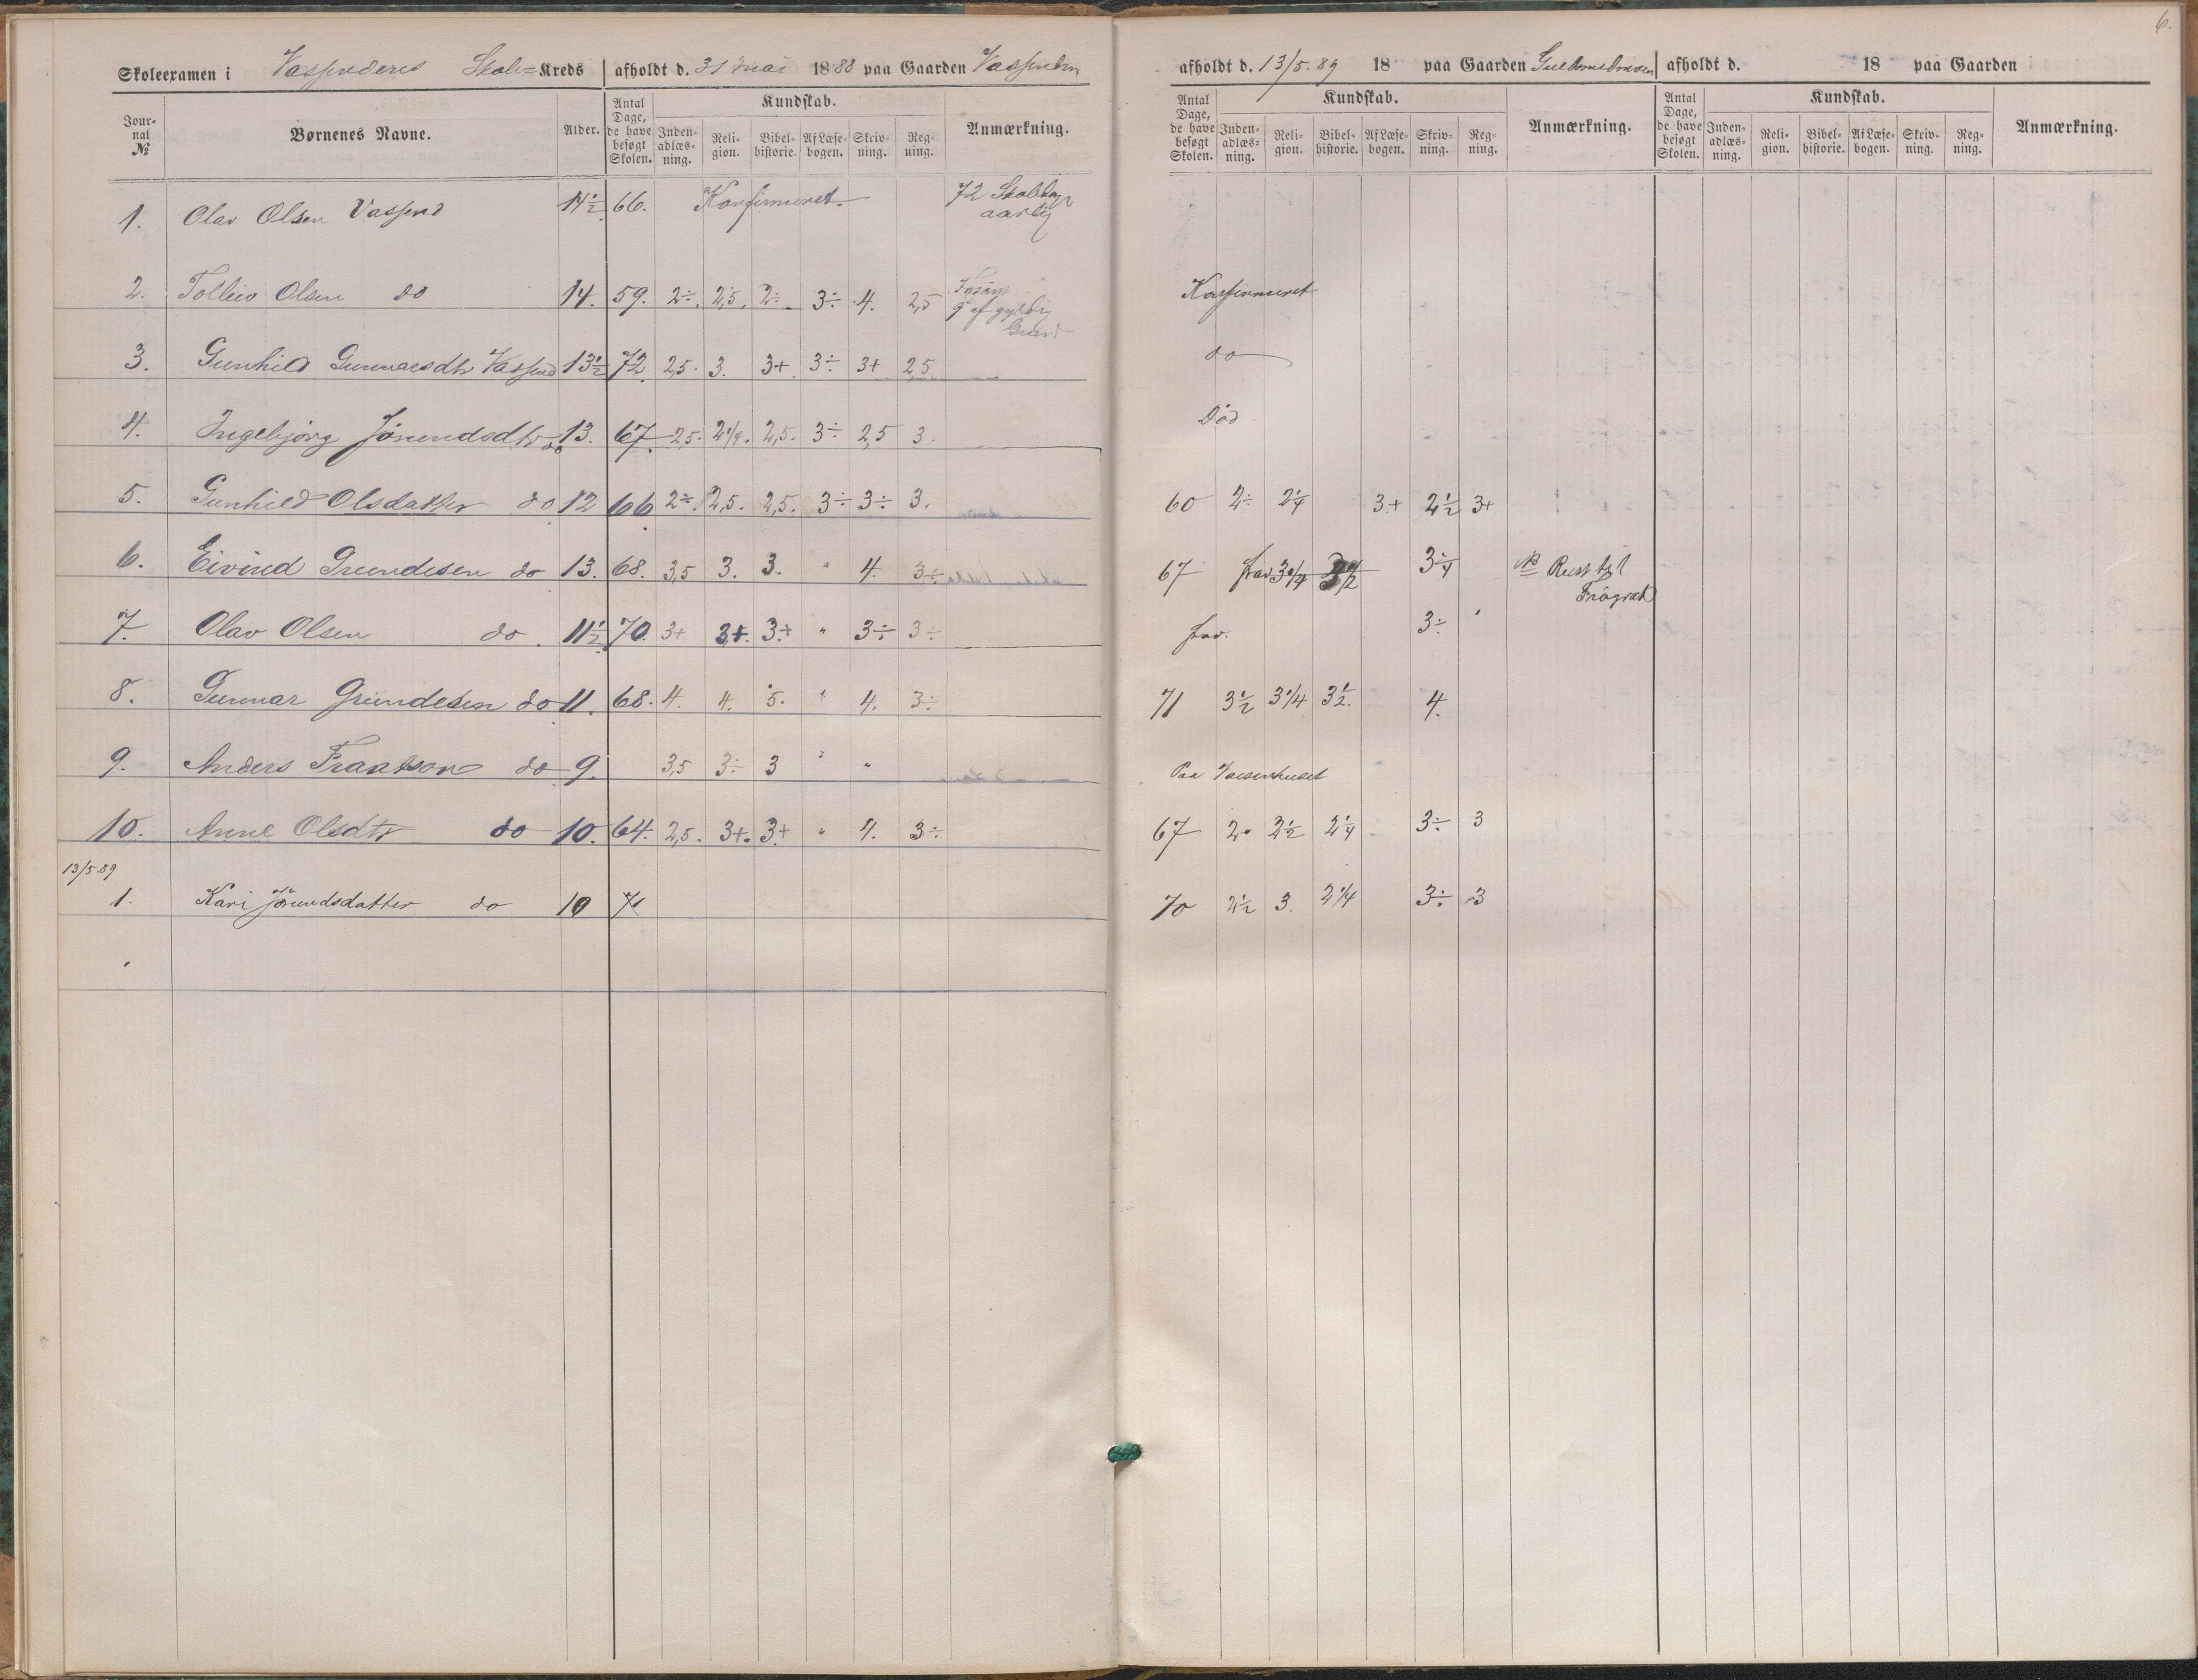 6.
Skoleexamen i Vassenderes Skole=Kreds afholdt d. 31 mai 1888 paa Gaarden Vassenden
Jour-nal № Børnenes Navne. Alder. Antal Dage, de have besøgt Skolen. Kundskab. Inden-adlæs-ning. Reli-gion. Bibel-historie. Af Læse-bogen. Skriv-ning. Reg-ning. Anmærkning.
1. Olav Olsen Vassend 14½ 66. Konfirmeret 72 Skoledage aarlig
2. Tolleiv Olsen do 14. 59. 2÷. 2,5. 2÷. 3÷ 4. 2,5 af gyldig Grund
3. Gunhild Gunnarsdtr Vassend 13½ 72. 2,5. 3. 3+. 3÷ 3+ 2,5
4. Ingebjørg Jörundsdtr do 13. 67. 2,5. 2¼. 2,5. 3÷ 2,5 3.
5. Gunhild Olsdatter do 12 66. 2÷. 2,5. 2,5. 3÷ 3÷ 3.
6. Eivind Grundesen do 13. 68. 3,5 3. 3. " 4. 3÷
7. Olav Olsen do. 11½ 70. 3+ 3+. 3+ " 3÷ 3÷
8. Gunnar Grundesen do 11. 68. 4. 4. 5. " 4. 3÷
9. Anders Fraatson do 9. 3,5 3÷ 3 " "
10. Anne Olsdtr do 10. 64. 2,5. 3+. 3+ " 4. 3÷
13/5 89
1. Kari Jörundsdatter do 10
afholdt d. 13/5. 89 18 paa Gaarden
Antal Dage, de have besøgt Skolen. Kundskab. Inden-adlæs-ning. Reli-gion. Bibel-historie. Af Læse-bogen. Skriv-ning. Reg-ning. Anmærkning.
Konfirmeret
do
Död
60 2÷ 2¼ 3+ 2½ 3+
67 frav. 3¼ 3½ 3¼ NB
frav. 3÷
71 3½ 3¼ 3½. 4.
Paa Vaisenhuset
67 2. 2½ 2¼ 3÷ 3
70 2½ 3. 2¼ 3÷ 3
afholdt d. 18 paa Gaarden
Antal Dage, de have besøgt Skolen. Kundskab. Inden-adlæs-ning. Reli-gion. Bibel-historie. Af Læse-bogen. Skriv-ning. Reg-ning. Anmærkning.